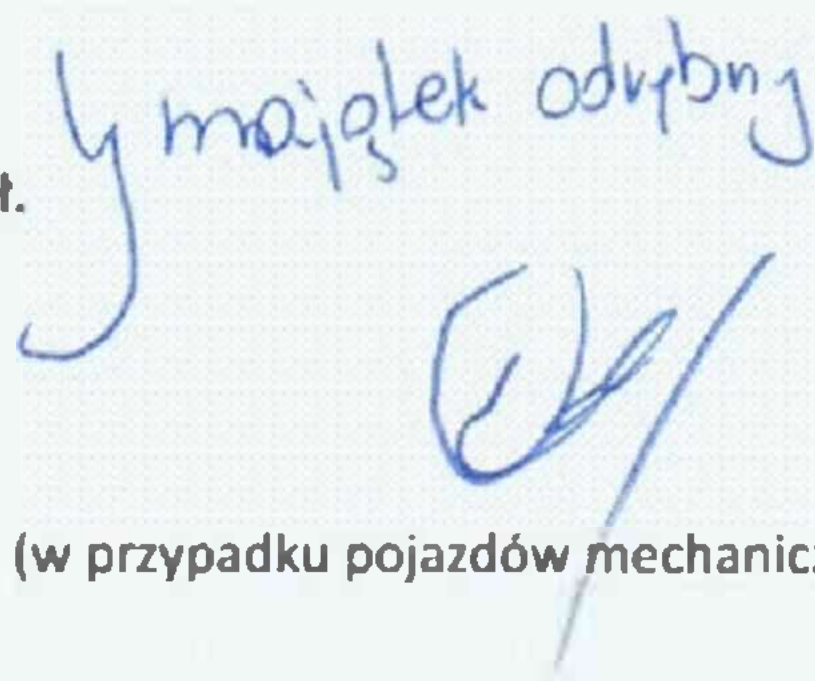 majątek odrębny
ł.
(w przypadku pojazdów mechanicz